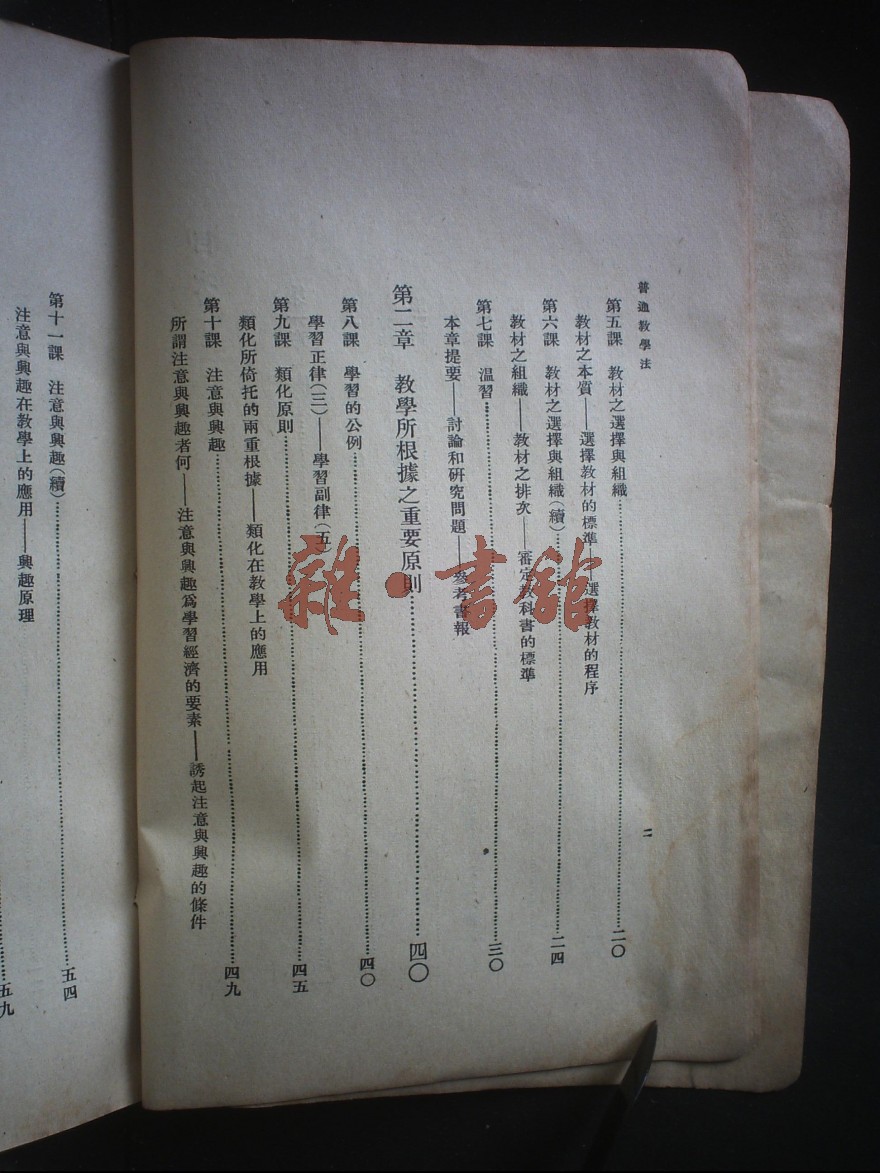 普通教學法
二
第五課　教材之選擇與組織……二〇
教材之本質——選擇教材的標準——選擇教材的程序
第六課　教材之選擇與組織(續)……二四
教材之組織——教材之排次——審定教科書的標準
第七課　温習……三〇
本章提要——討論和研究問題——參考書報
第二章　教學所根據之重要原則……四〇
第八課　學習的公例……四〇
學習正律(三)——學習副律(五)
第九課　類化原則……四五
類化所倚托的兩重根據——類化在教學上的應用
第十課　注意與興趣……四九
所謂注意與興趣者何——注意與興趣爲學習經濟的要素——誘起注意與興趣的條件
第十一課　注意與興趣(續)……五四
注意與興趣在教學上的應用——興趣原理
……五九
雜·書館